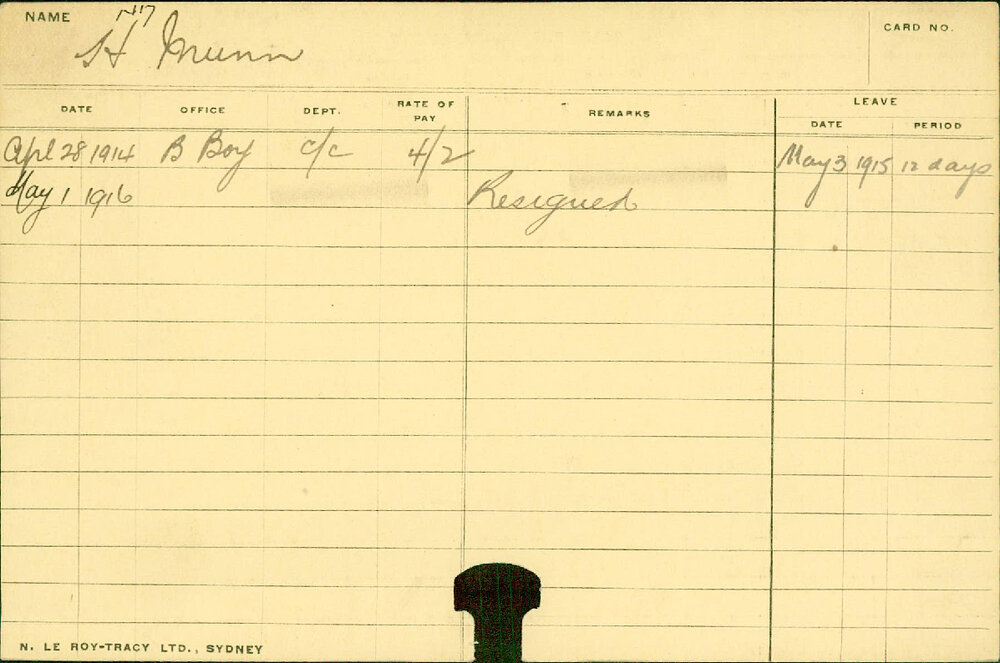 NAME
H Munn
CARD NO.
DATE OFFICE DEPT. RATE OF PAY REMARKS LEAVE
DATE PERIOD
Apl 28 1914 B Boy C/C 4/2 May 3 1915 12 days
May 1 1916 Resigned
N. LE ROY-TRACY LTD., SYDNEY